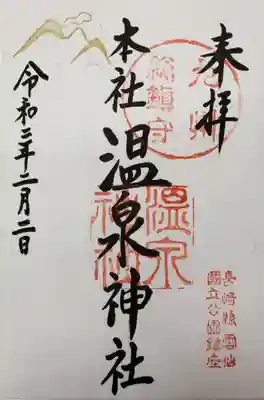 奉拝
本社 温泉神社
令和二年二月二日
温泉
神社
長崎縣雲仙
國立公園鎮座